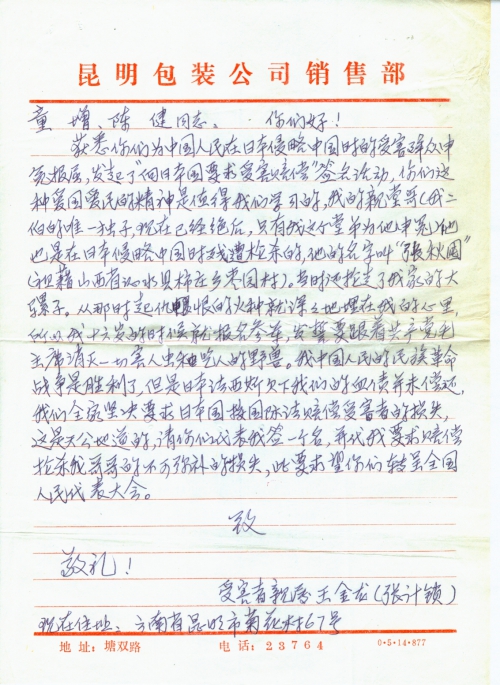 昆明包装公司销售部
童增、陈健同志: 你们好!
获悉你们为中国人民在日本侵略中国时的受害群众申
冤报屈,发起了“向日本国要求受害赔偿”签名活动,你们这
种爱国爱民的精神是值得我们学习的,我的親堂哥(我二
伯的唯一独子,现在已经绝后,只有我这个堂弟为他申冤)他
也是在日本侵略中国时我遭枪杀的,他的名字叫“張秋园”
(祖籍山西省泌水县柿庄乡枣园村)。当时还抢走了我家的大
骡子。从那时起仇恨的火种就深深地埋在我的心里,
所以我十六岁的时候就报名参军,发誓要跟着共产党毛
主席消灭一切害人虫和吃人的野兽。我中国人民的民族革命
战争是胜利了,但是日本法西斯欠下我们的血债并未偿还,
我们全家坚决要求日本国按国际法赔偿受害者的损失,
这是天公地道的,请你们代表我签一个名,并代我要求赔偿
枪杀我哥哥的不可弥补的损失,此要求望你们转呈全国
人民代表大会。
致
敬礼!
受害者親属 王金龙(張计锁)
现在住址:云南省昆明市菊花村67号
地址:塘双路 电话:23764 0·5·14·877